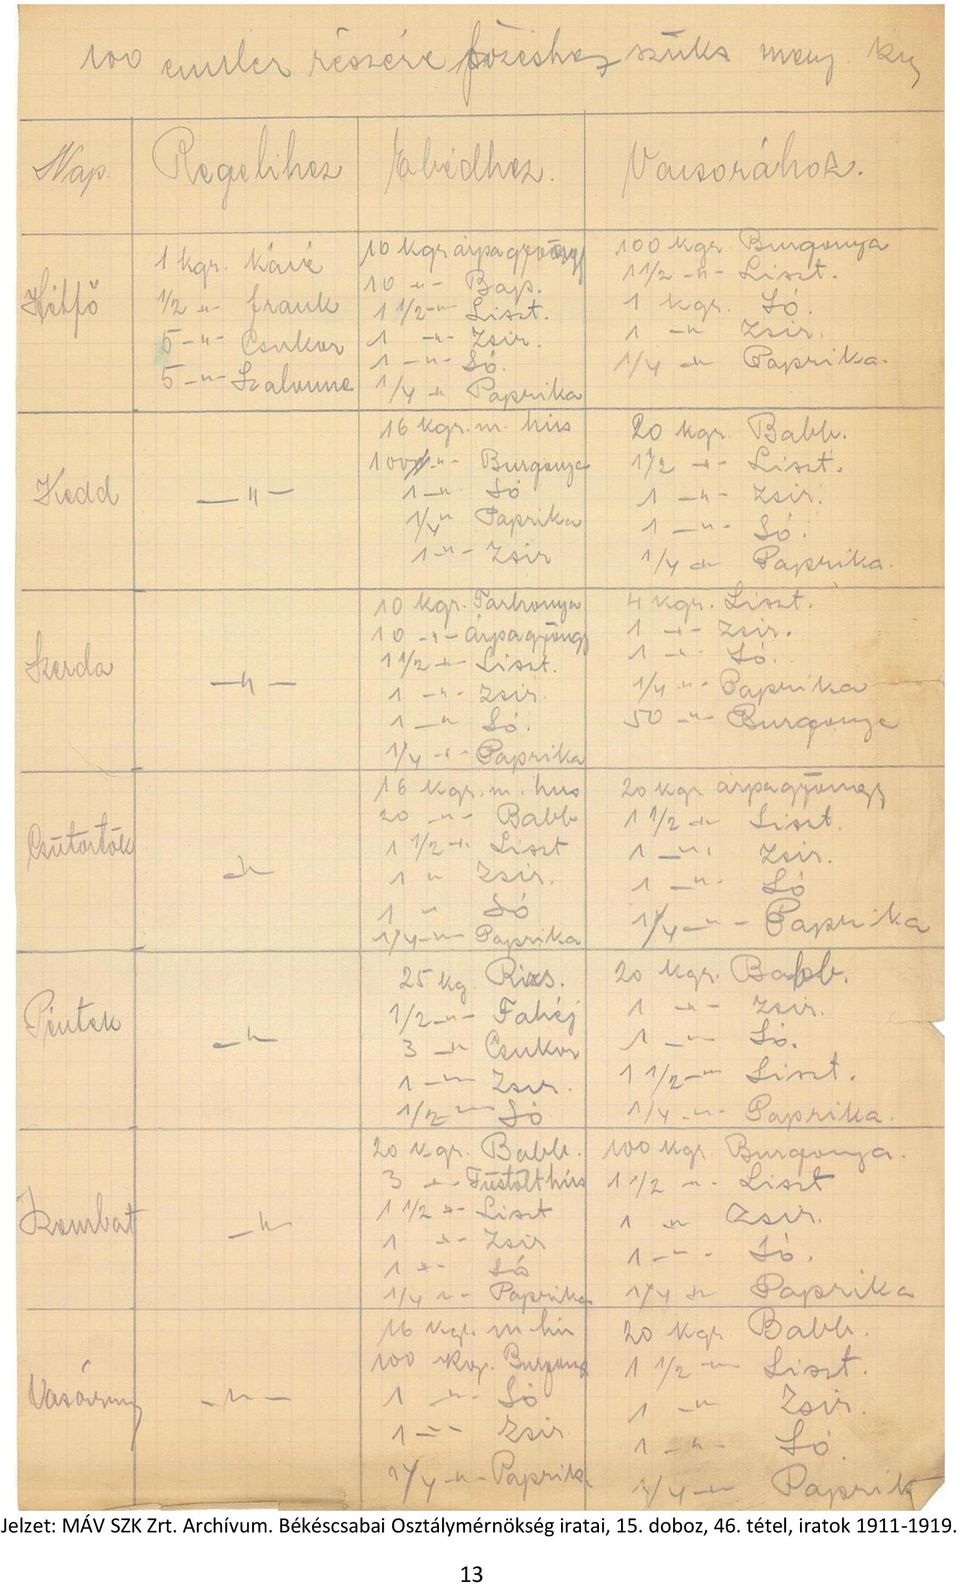 100 ember részére főzéshez szüks meny. kig
Nap. Regelihez Ebédhez. Vacsorához.
Hétfő
1 kgr. Kávé
1/2 -"- frank
5 -"- Csukor
5 -"- Szalonna
10 kgr árpagyöngy
10 -"- Bap.
1 1/2 -"- Liszt.
1 -"- Zsir.
1 -"- Só.
1/4 -"- Paprika
100 kgr. Burgonya
1 1/2 -"- Liszt.
1 kgr. Só.
1 -"- Zsir.
1/4 -"- Paprika.
Kedd
-"-
16 kgr. m. hús
100 -"- Burgonya
1 -"- Só
1/4 " Paprika
1 -"- Zsir
20 kgr. Babb.
1 1/2 -"- Liszt.
1 -"- Zsir.
1 -"- Só.
1/4 -"- Paprika.
Szerda
-"-
10 kgr. Tarhonya
10 -"- Árpagyöngy
1 1/2 -"- Liszt.
1 -"- Zsir.
1 -"- Só.
1/4 -"- Paprika
4 kgr. Liszt.
1 -"- Zsir.
1 -"- Só.
1/4 -"- Paprika
50 -"- Burgonya
Csütörtök
-"-
16 kgr. m. hus
20 -"- Babb
1 1/2 -"- Liszt
1 " Zsir.
1 " Só
1/4 -"- Paprika
20 kgr árpagyöngy
1 1/2 -"- Liszt.
1 -"- Zsir.
1 -"- Só
1/4 -"- Paprika
Péntek
-"-
25 kg. Rizs.
1/2 -"- Fahéj
3 -"- Csukor
1 -"- Zsir.
1/2 -"- Só
20 kgr. Babb.
1 -"- Zsir.
1 -"- Só.
1 1/2 -"- Liszt.
1/4 -"- Paprika.
Szombat
-"-
20 kgr. Babb.
3 -"- Füstölt hús
1 1/2 -"- Liszt
1 -"- Zsir
1 -"- Só
1/4 -"- Paprika
100 kgr. Burgonya.
1 1/2 -"- Liszt
1 -"- Zsir.
1 -"- Só.
1/4 -"- Paprika
Vasárnap
-"-
16 kgr. m hús
100 kgr. Burgonya
1 -"- Só
1 -"- Zsir
1/4 -"- Paprika
20 kgr. Babb.
1 1/2 -"- Liszt.
1 -"- Zsir.
1 -"- Só.
1/4 -"- Paprik
Jelzet: MÁV SZK Zrt. Archívum. Békéscsabai Osztálymérnökség iratai, 15. doboz, 46. tétel, iratok 1911-1919.
13